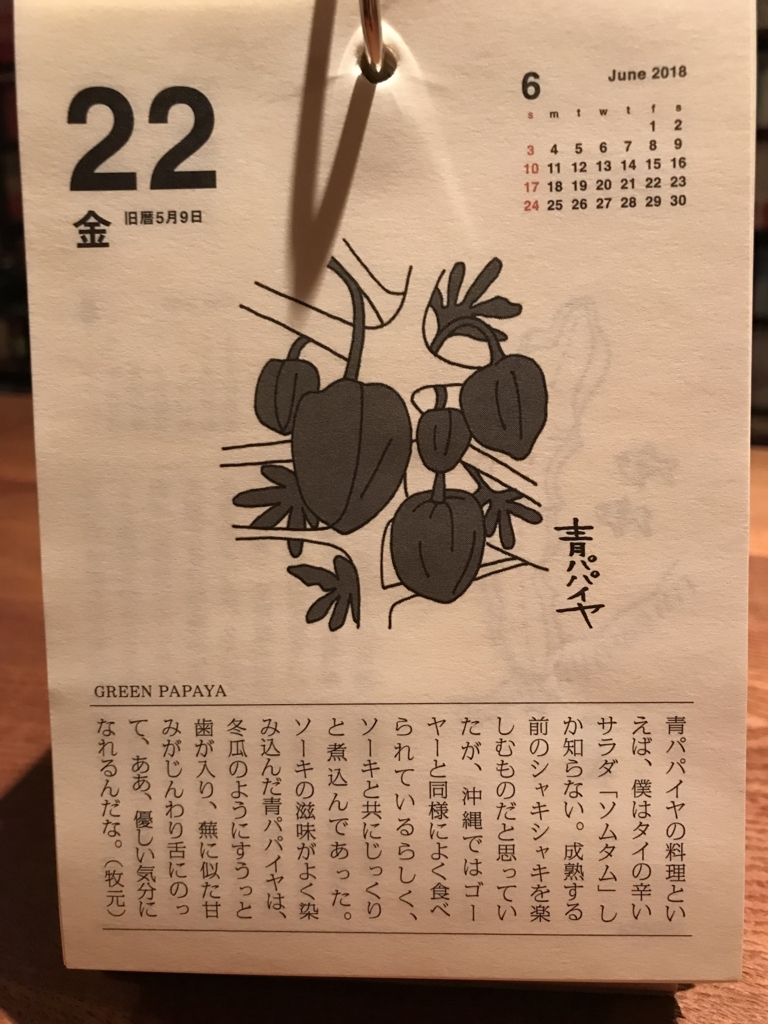 22
金 旧暦5月9日
6 June 2018
s m t w t f s
1 2
3 4 5 6 7 8 9
10 11 12 13 14 15 16
17 18 19 20 21 22 23
24 25 26 27 28 29 30
青パパイヤ
GREEN PAPAYA
青パパイヤの料理とい
えば、僕はタイの辛い
サラダ「ソムタム」し
か知らない。成熟する
前のシャキシャキを楽
しむものだと思ってい
たが、沖縄ではゴー
ヤーと同様によく食べ
られているらしく、
ソーキと共にじっくり
と煮込んであった。
ソーキの滋味がよく染
み込んだ青パパイヤは、
冬瓜のようにすうっと
歯が入り、蕪に似た甘
みがじんわり舌にのっ
て、ああ、優しい気分に
なれるんだな。（牧元）